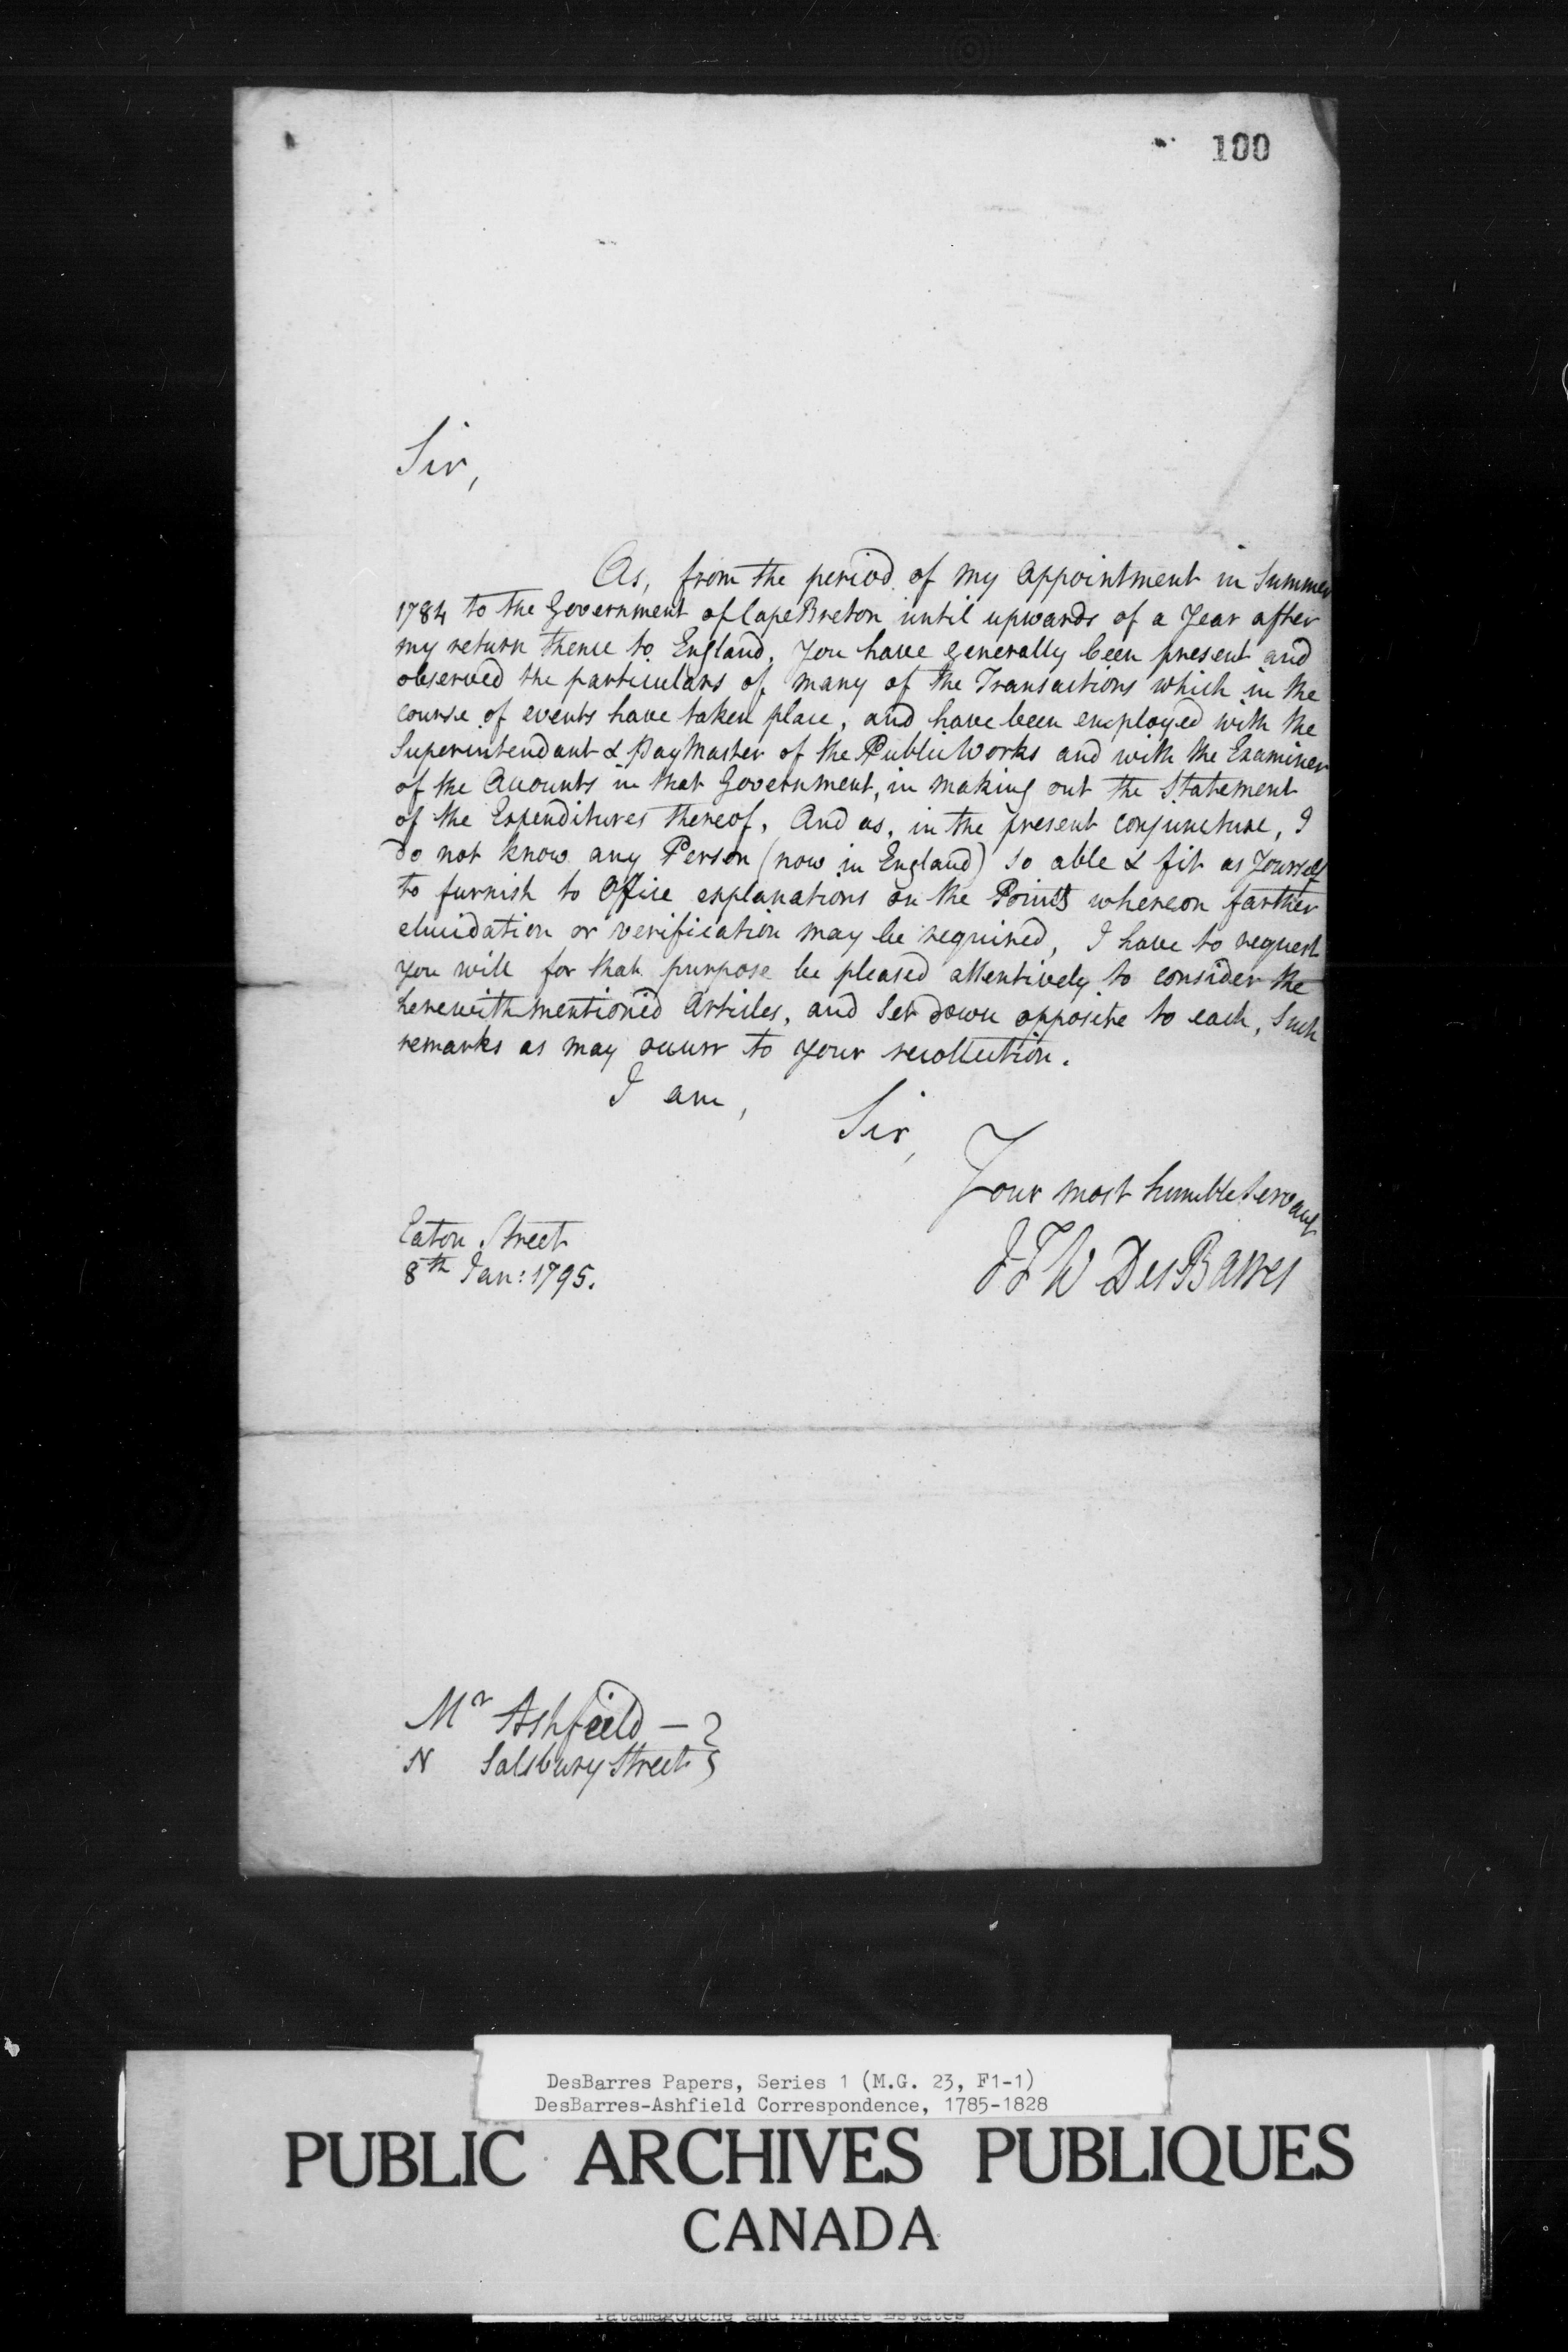 100
Sir,
As, from the period of my Appointment in Summer
1784 to the Government of Cape Breton until upwards of a Year after
my return thence to England, You have generally been present and
observed the particulars of many of the Transactions which in the
course of events have taken place, and have been employed with the
Superintendant & PayMaster of the Public Works and with the Examiner
of the Accounts in that Government, in making out the Statement
of the Expenditures thereof, And as, in the present conjuncture, I
do not know any Person (now in England) so able & fit as Yourself
to furnish to Office explanations on the Points whereon farther
elucidation or verification may be required, I have to request
you will for that purpose be pleased attentively to consider the
herewith mentioned Articles, and Set down opposite to each, Such
remarks as may occurr to your recollection.
I am,
Sir,
Your most humble Servant
J F W DesBarres
Eaton Street
8th Jan: 1795.
Mr Ashfield —
N Salsbury Street
DesBarres Papers, Series 1 (M.G. 23, F1-1)
DesBarres-Ashfield Correspondence, 1785-1828
PUBLIC ARCHIVES PUBLIQUES
CANADA
Tatamagouche and Minudie Estates